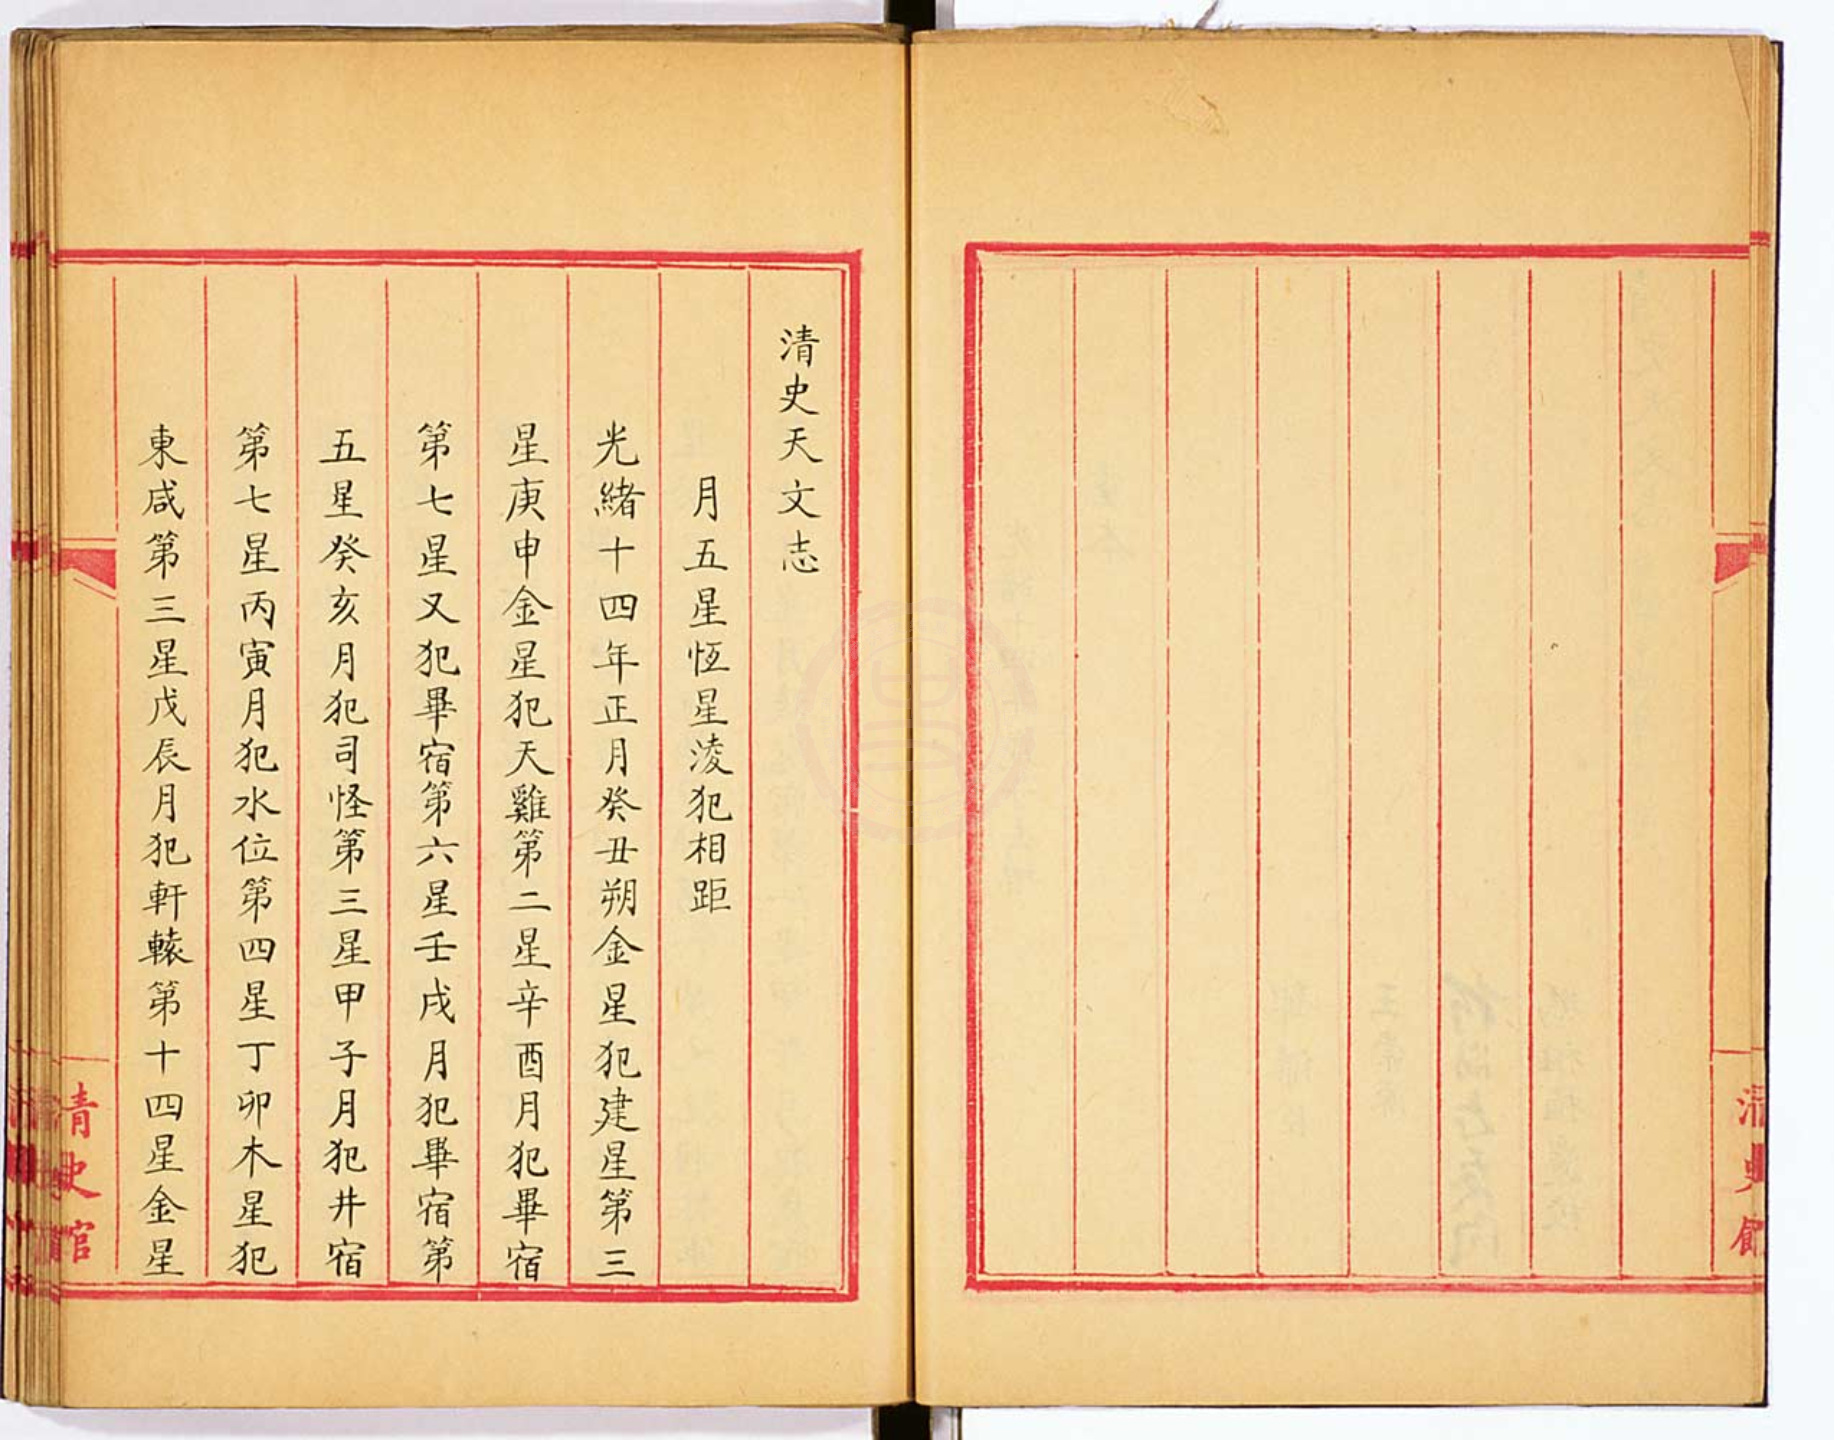 清史天文志
月五星恆星淩犯相距
光緒十四年正月癸丑朔金星犯建星第三
星庚申金星犯天雞第二星辛酉月犯畢宿
第七星又犯畢宿第六星壬戌月犯畢宿第
五星癸亥月犯司怪第三星甲子月犯井宿
第七星丙寅月犯水位第四星丁卯木星犯
東咸第三星戊辰月犯軒轅第十四星金星
清史館
清史館